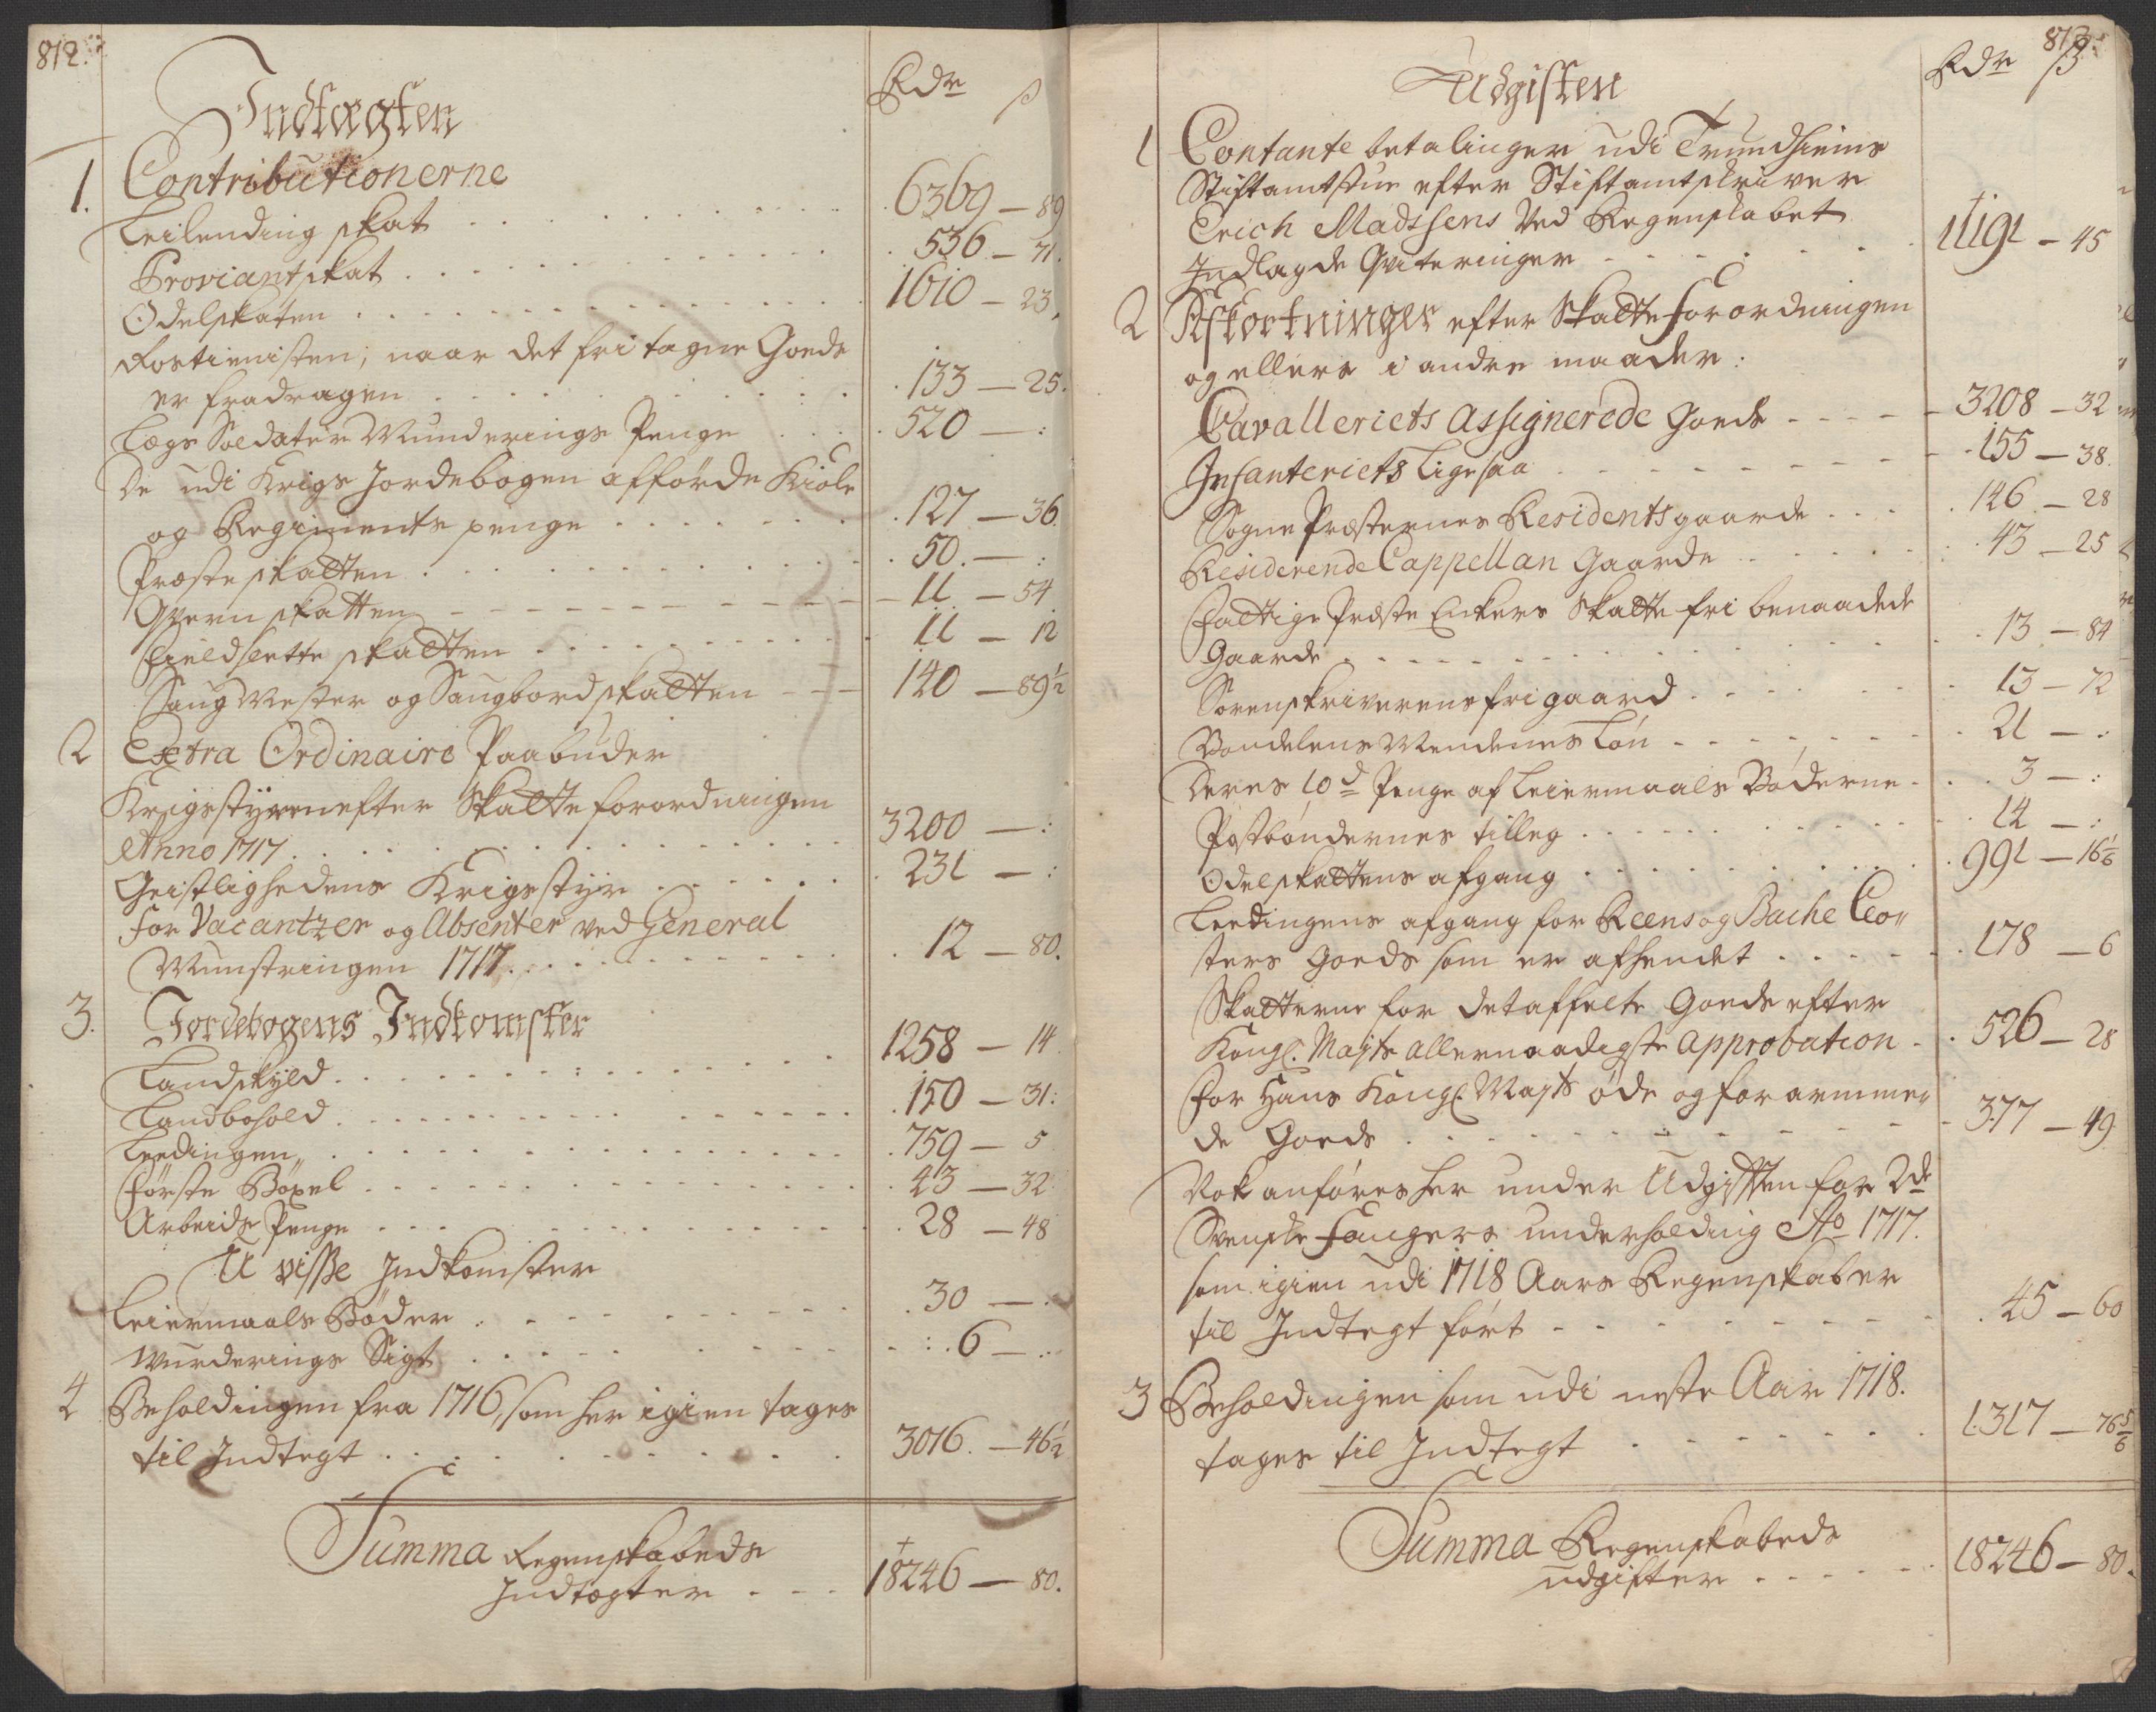 812.
Rdr ß
Indtægten
1. Contributionerne
Leilending skat . . . 6369 — 89
Proviantskat . . . 536 — 71.
Odelskaten . . . 1610 — 23.
Rostienisten, naar det fri tagne Goeds
er fradragen . . . 133 — 25.
Legs Soldater Munderings Penge . . . 520 — :
De udi Krigs Jordebogen afførde Kiole
og Regiments penge . . . 127 — 36.
Præste skatten . . . 50. — :
Qvern skatten . . . 11 — 54
Fieldslette skatten . . . 11 — 12
Saug Mester og Saugbord skatten — 140 — 89½
2 Extra Ordinaire Paabuder
Krigsstyren efter Skatte forordningen
Anno 1717 . . . 3200 — :
Geistlighedens Krigsstyr . . . 231 — :
For Vacantzer og Absenter ved General
Munstringen 1717. . . . 12 — 80.
3. Jordebogens Indkomster
Landskyld . . . 1258 — 14
Landbohold . . . 150 — 31:
Leedingen . . . 759 — 5
Første Böxel . . . 43 — 32
Arbeids Penge . . . 28 — 48
U visse Indkomster
Leiermaals Bøder . . . 30 — .
Wurderings Sigt . . . 6 — .
4 Beholdingen fra 1716, som her igien tages
til Indtegt . . . 3016. — 46½
Summa Regenskabeds
Indtægter . . . 18246 — 80.
813.
Rdr ß
Udgiften
1 Contante betalinger udi Trundhiems
Stiftamtstue efter Stiftamtskriver
Erich Madsens Ved Regenskabet
Indlagde Qviteringer . . . 11191 — 45
2 Afkortninger efter Skatte forordningen
og ellers i andre maader:
Cavalleriets assignerede Goeds . . . 3208 — 32
Infanteriets Ligesaa . . . 155 — 38.
Sogne Præsternes Residentsgaarde . . . 146 — 28
Residerende Cappellan Gaarde . . . 43 — 25
Fattige Præste Enkers Skatte fri benaadede
Gaarde . . . 13 — 84
Sorenskriverens frigaard . . . 13 — 72
Bondelens Mendenes Løn . . . 21 — .
Deres 10d Penge af Leiermaals Bøderne . . . 3 — :
Postbøndernes tilleg . . . 14 — :
Odelskattens afgang . . . 991 — 16 1/6
Leedingens afgang for Reens og Bache Clo"
sters Goeds som er afhendet . . . 178 — 6
Skatterne for det affelte Goeds efter
Kongl. Mayts allernaadigste approbation . . . 526 — 28
For Hans Kongl. Mayts øde og forarmme"
de Goeds . . . 377 — 49
Nok anføres her under Udgiften for 2de
Svenske Fangers underholding Ao 1717.
som igien udi 1718 Aars Regenskaber
til Indtegt ført . . . 45 — 60
3 Beholdingen som udi neste Aar 1718.
tages til Indtegt . . . 1317 — 76 5/6
Summa Regenskabeds
udgifter . . . 18246 — 80.